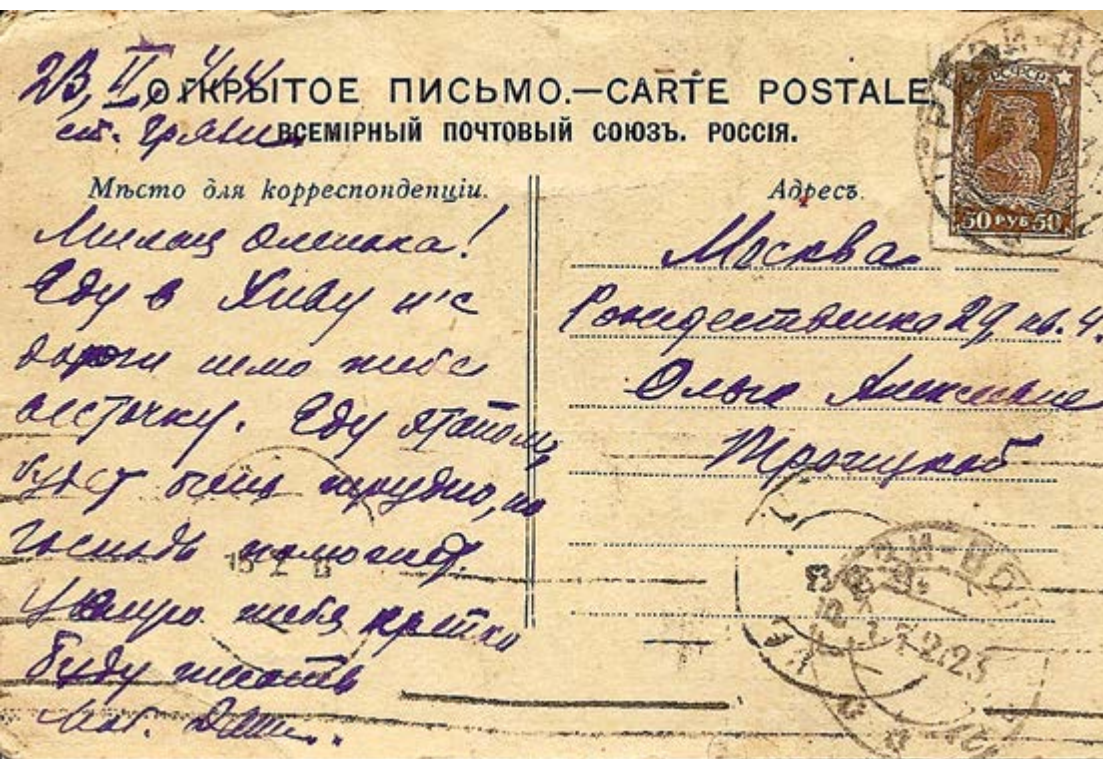 23, II
ст. Грязи
ОТКРЫТОЕ ПИСЬМО.—CARTE POSTALE.
ВСЕМІРНЫЙ ПОЧТОВЫЙ СОЮЗЪ. РОССІЯ.
Мѣсто для корреспонденціи.
Милая Оленька!
Еду в Хиву и с
дороги шлю тебе
весточку. Еду этапом,
будет очень трудно, но
Господь поможет.
Целую тебя крепко
буду писать
Даш.
Адресъ.
РСФСР
50 РУБ 50
Москва
Рождественка 29, кв. 4.
Ольге Алексеевне
Троицкой